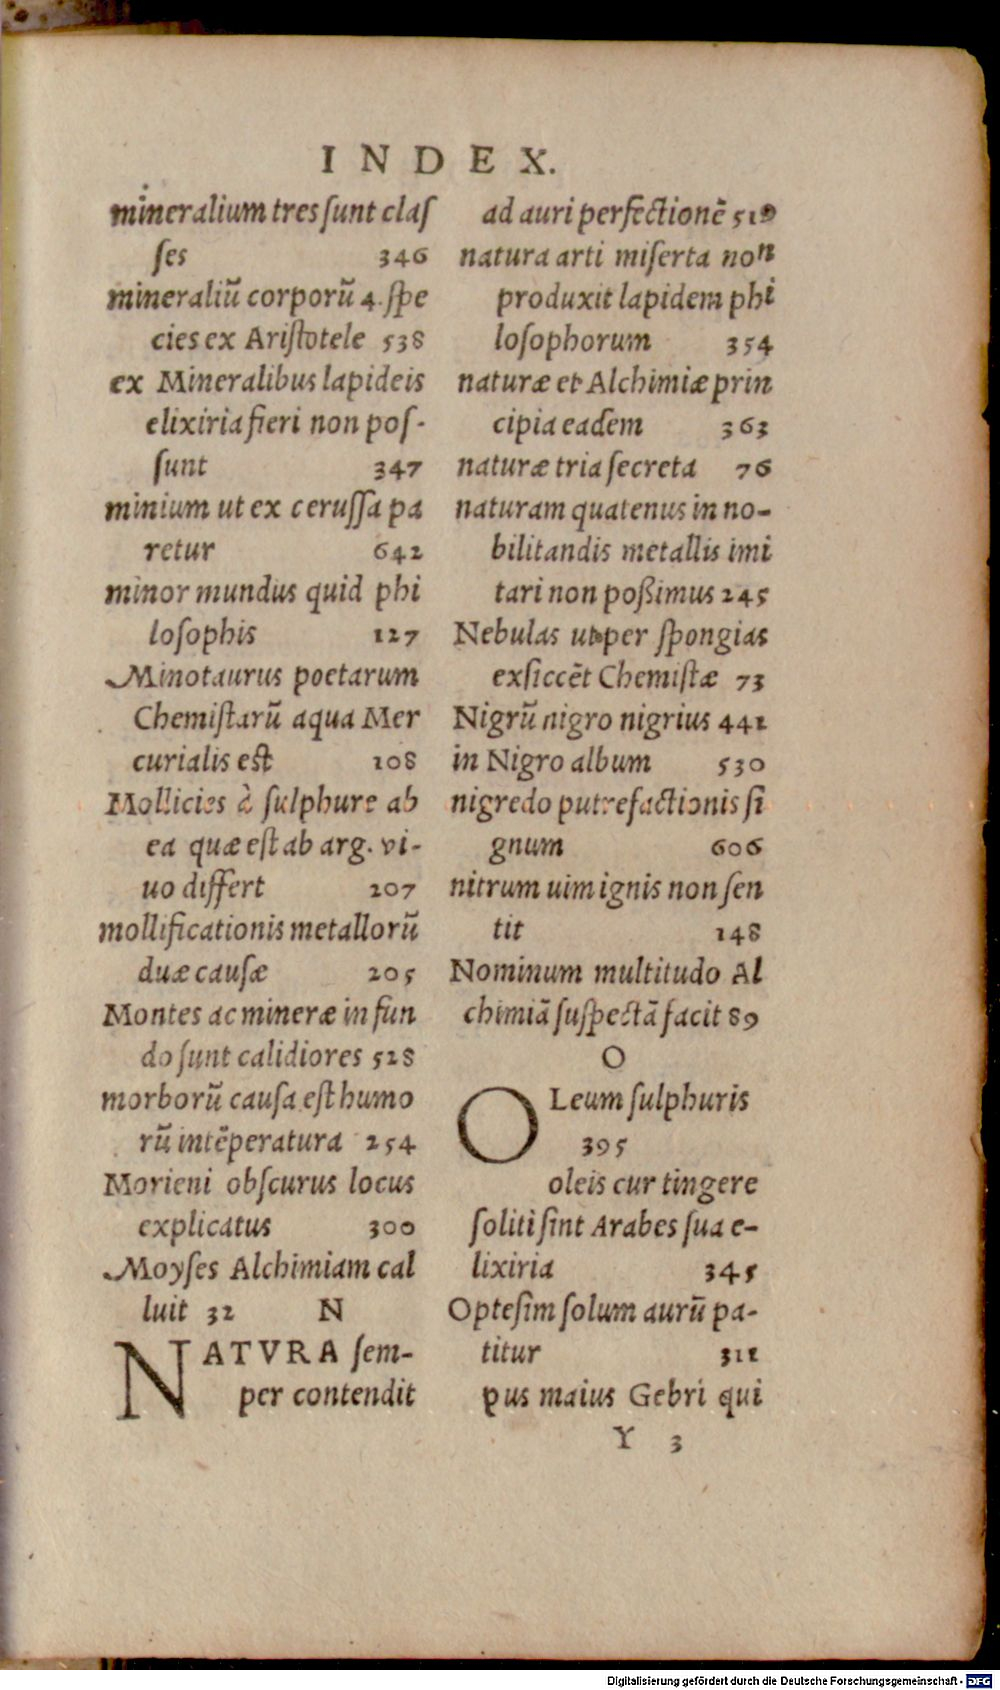 INDEX.
mineralium tres ſunt claſ
ſes 346
mineraliũ corporũ 4. ſpe
cies ex Ariſtotele 538
ex Mineralibus lapideis
elixiria fieri non poſ-
ſunt 347
minium ut ex ceruſſa pa
retur 642
minor mundus quid phi
loſophis 127
Minotaurus poetarum
Chemiſtarũ aqua Mer
curialis est 108
Mollicies à ſulphure ab
ea quæ eſt ab arg. vi-
uo differt 207
mollificationis metallorũ
duæ cauſæ 205
Montes ac mineræ in fun
do ſunt calidiores 528
morborũ cauſa eſt humo
rũ intẽperatura 254
Morieni obſcurus locus
explicatus 300
Moyſes Alchimiam cal
luit 32 N
NATVRA ſem-
per contendit
ad auri perfectionẽ 519
natura arti miſerta non
produxit lapidem phi
loſophorum 354
naturæ et Alchimiæ prin
cipia eadem 363
naturæ tria ſecreta 76
naturam quatenus in no-
bilitandis metallis imi
tari non poßimus 245
Nebulas ut per ſpongias
exſiccẽt Chemiſtæ 73
Nigrũ nigro nigrius 441
in Nigro album 530
nigredo putrefactionis ſi
gnum 606
nitrum uim ignis non ſen
tit 148
Nominum multitudo Al
chimiã ſuſpectã facit 89
O
OLeum ſulphuris
395
oleis cur tingere
ſoliti ſint Arabes ſua e-
lixiria 345
Opteſim ſolum aurũ pa-
titur 311
pus maius Gebri qui
Y 3
Digitalisierung gefördert durch die Deutsche Forschungsgemeinschaft - DFG